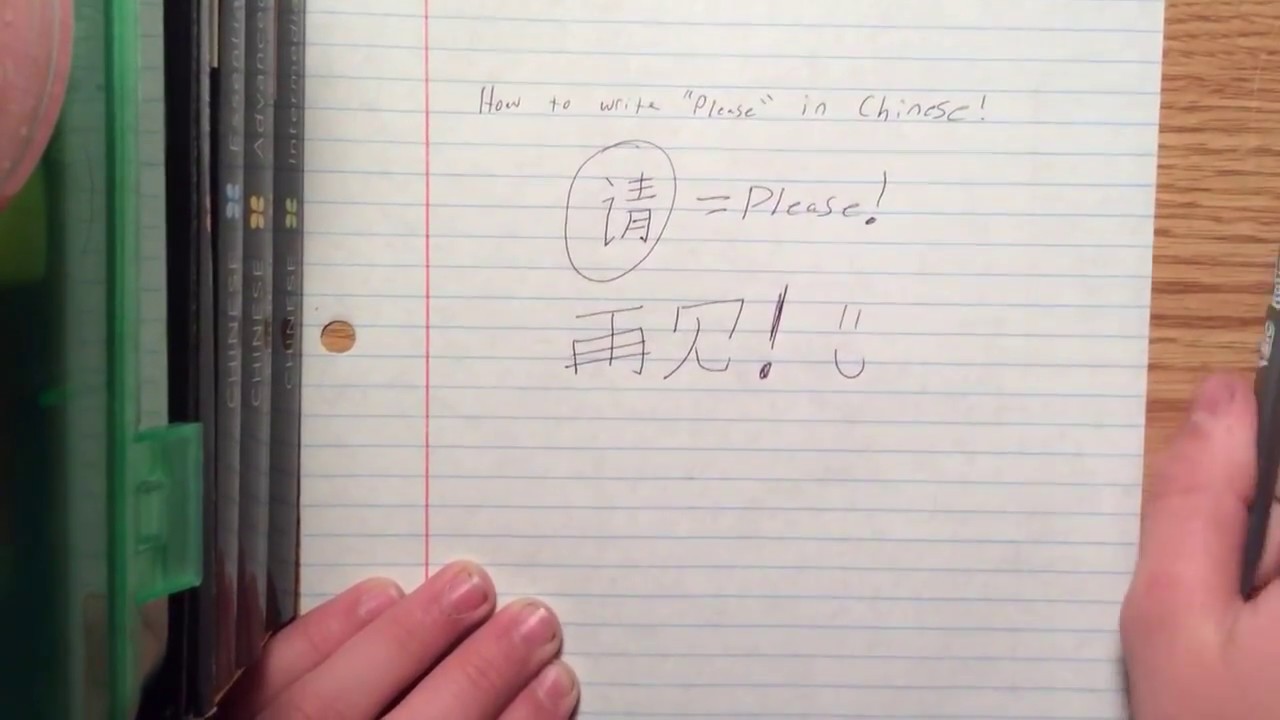 How to write "Please" in Chinese!
请 = Please!
再见!
CHINESE Essential
CHINESE Advanced
CHINESE